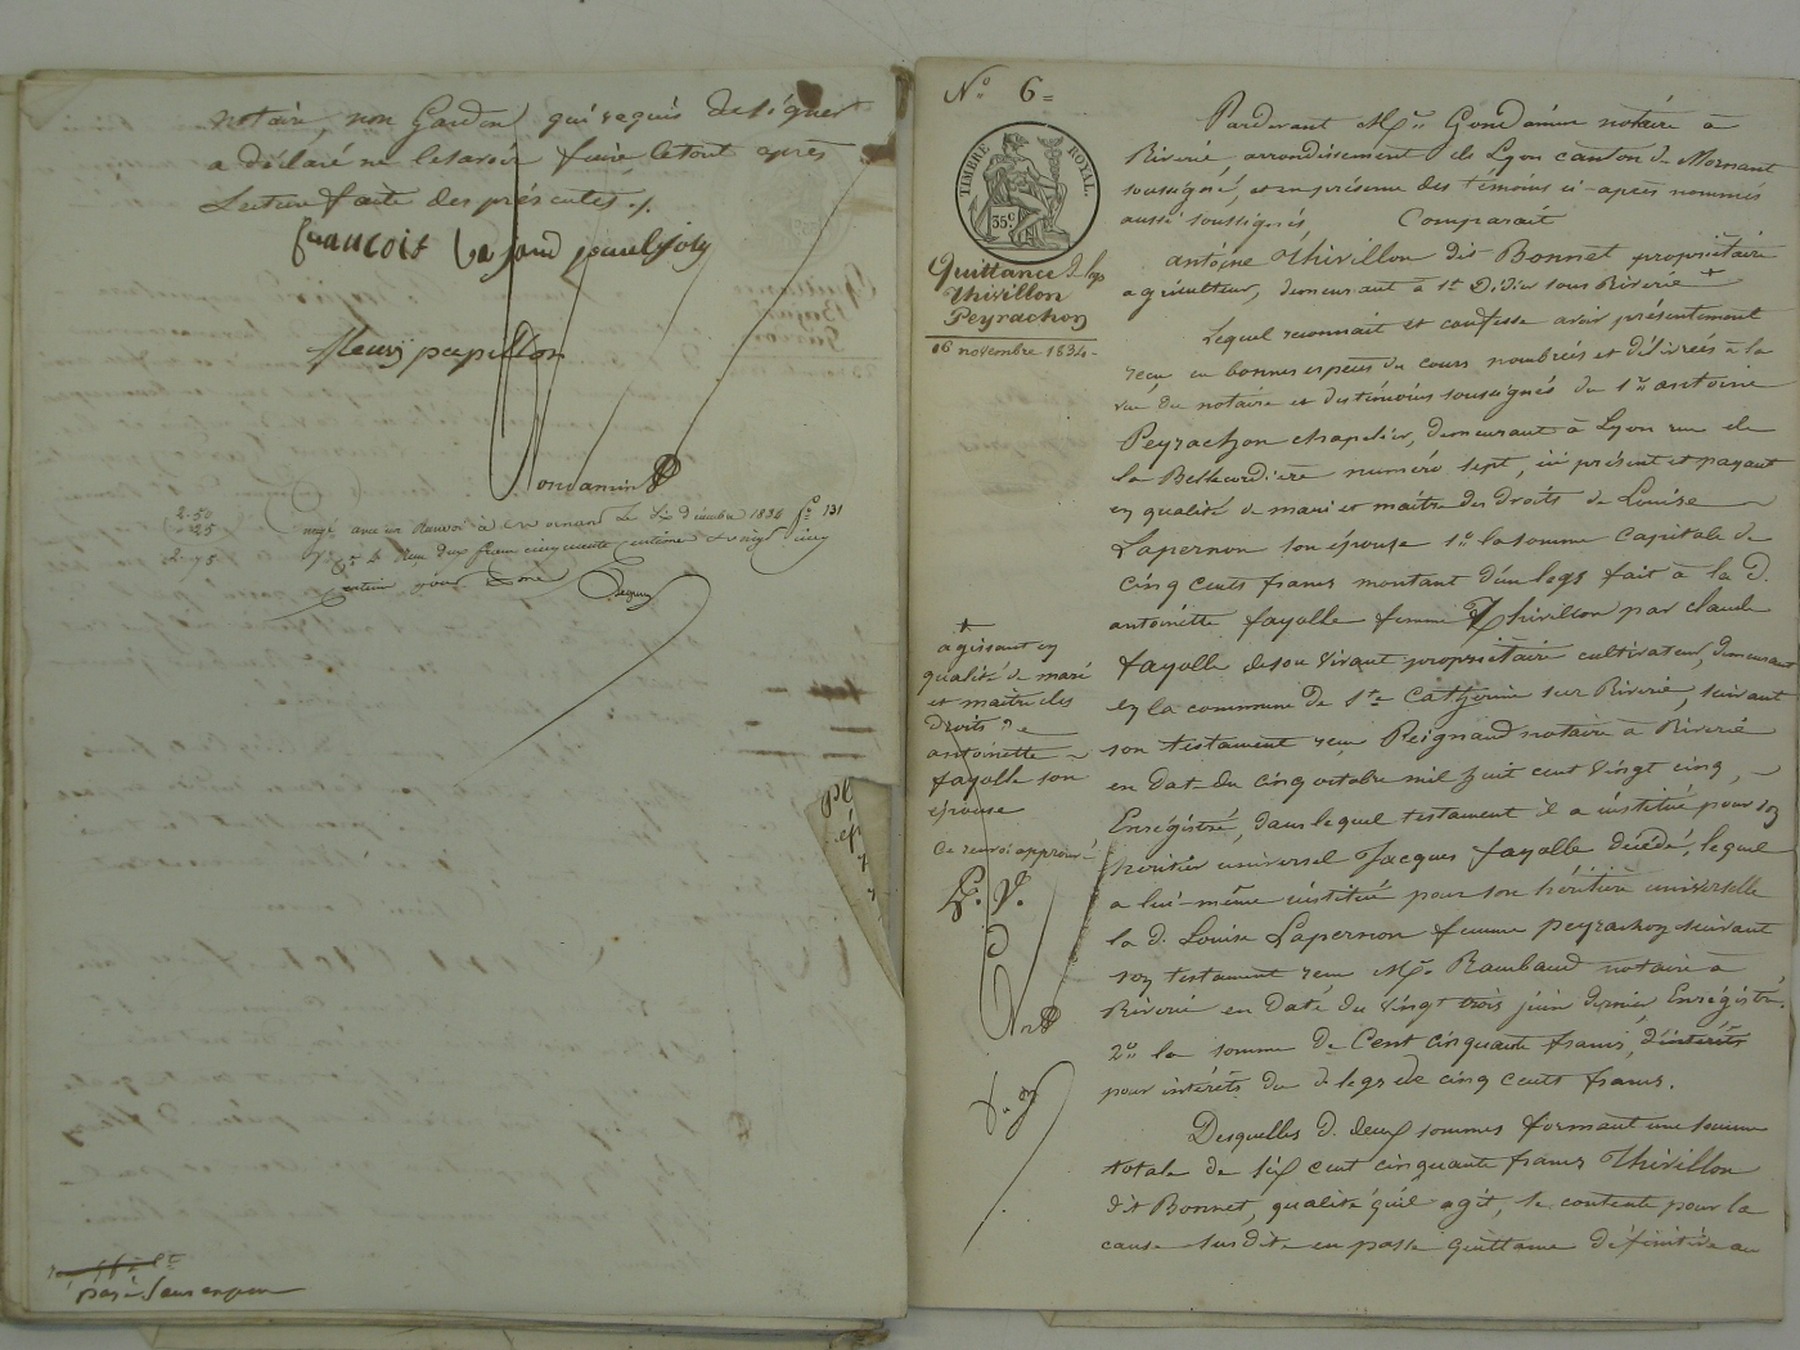 notaire, non Gardon qui requis de signer
a déclaré ne le savoir faire le tout après
Lecture faite des présentes ./.
francois La fond jounel joly
fleury papillon
Gondamin
2.50
.25
2.75
Enregé avec un Renvoi à Mornant Le Six décembre 1834 fo 131
Reçu deux francs cinquante centimes et vingt cinq
centimes pour
payé
No 6=
TIMBRE ROYAL.
35c
Quittance de legs
Thivillon
Peyrachon
16 novembre 1834-
Pardevant Me Gondamin notaire à
Riverie, arrondissement de Lyon canton de Mornant
soussigné, et en présence des témoins ci-après nommés
aussi soussignés, Comparait
antoine Thivillon dit Bonnet propriétaire
agriculteur, demeurant à St Didier sous Riverie
Lequel reconnait et confesse avoir présentement
reçu en bonnes espèces du cours nombrées et délivrées à la
vue du notaire et des témoins soussignés du sr antoine
Peyrachon chapelier, demeurant à Lyon rue de
la Bellecordière numéro sept, ici présent et payant
en qualité de mari et maitre des droits de Louise
Lapernon son épouse 1o la somme Capitale de
cinq cents francs montant d'un legs fait à la d.
antoinette fayolle femme Thivillon par claude
fayolle de son vivant propriétaire cultivateur, demeurant
en la commune de Ste Catherine sur Riverie, suivant
son testament reçu Reignaud notaire à Riverie
en date du cinq octobre mil huit cent vingt cinq,
Enrégistré, dans lequel testament il a institué pour son
héritier universel Jacques fayolle décédé, lequel
a lui-même institué pour son héritière universelle
la d. Louise Lapernon femme peyrachon suivant
son testament reçu Me. Raimbaud notaire à
Riverie en date du vingt trois juin dernier Enrégistré.
2o la somme de Cent cinquante francs, d'intérêts
pour intérêts du d legs de cinq cents francs.
Desquelles d. deux sommes formant une somme
totale de six cent cinquante francs Thivillon
dit Bonnet, qualité qu'il agit, se contente pour la
cause susdite en passe Quittance définitive au
agissant en
qualité de mari
et maitre des
droits de
antoinette
fayolle son
épouse
Ce renvoi approuvé